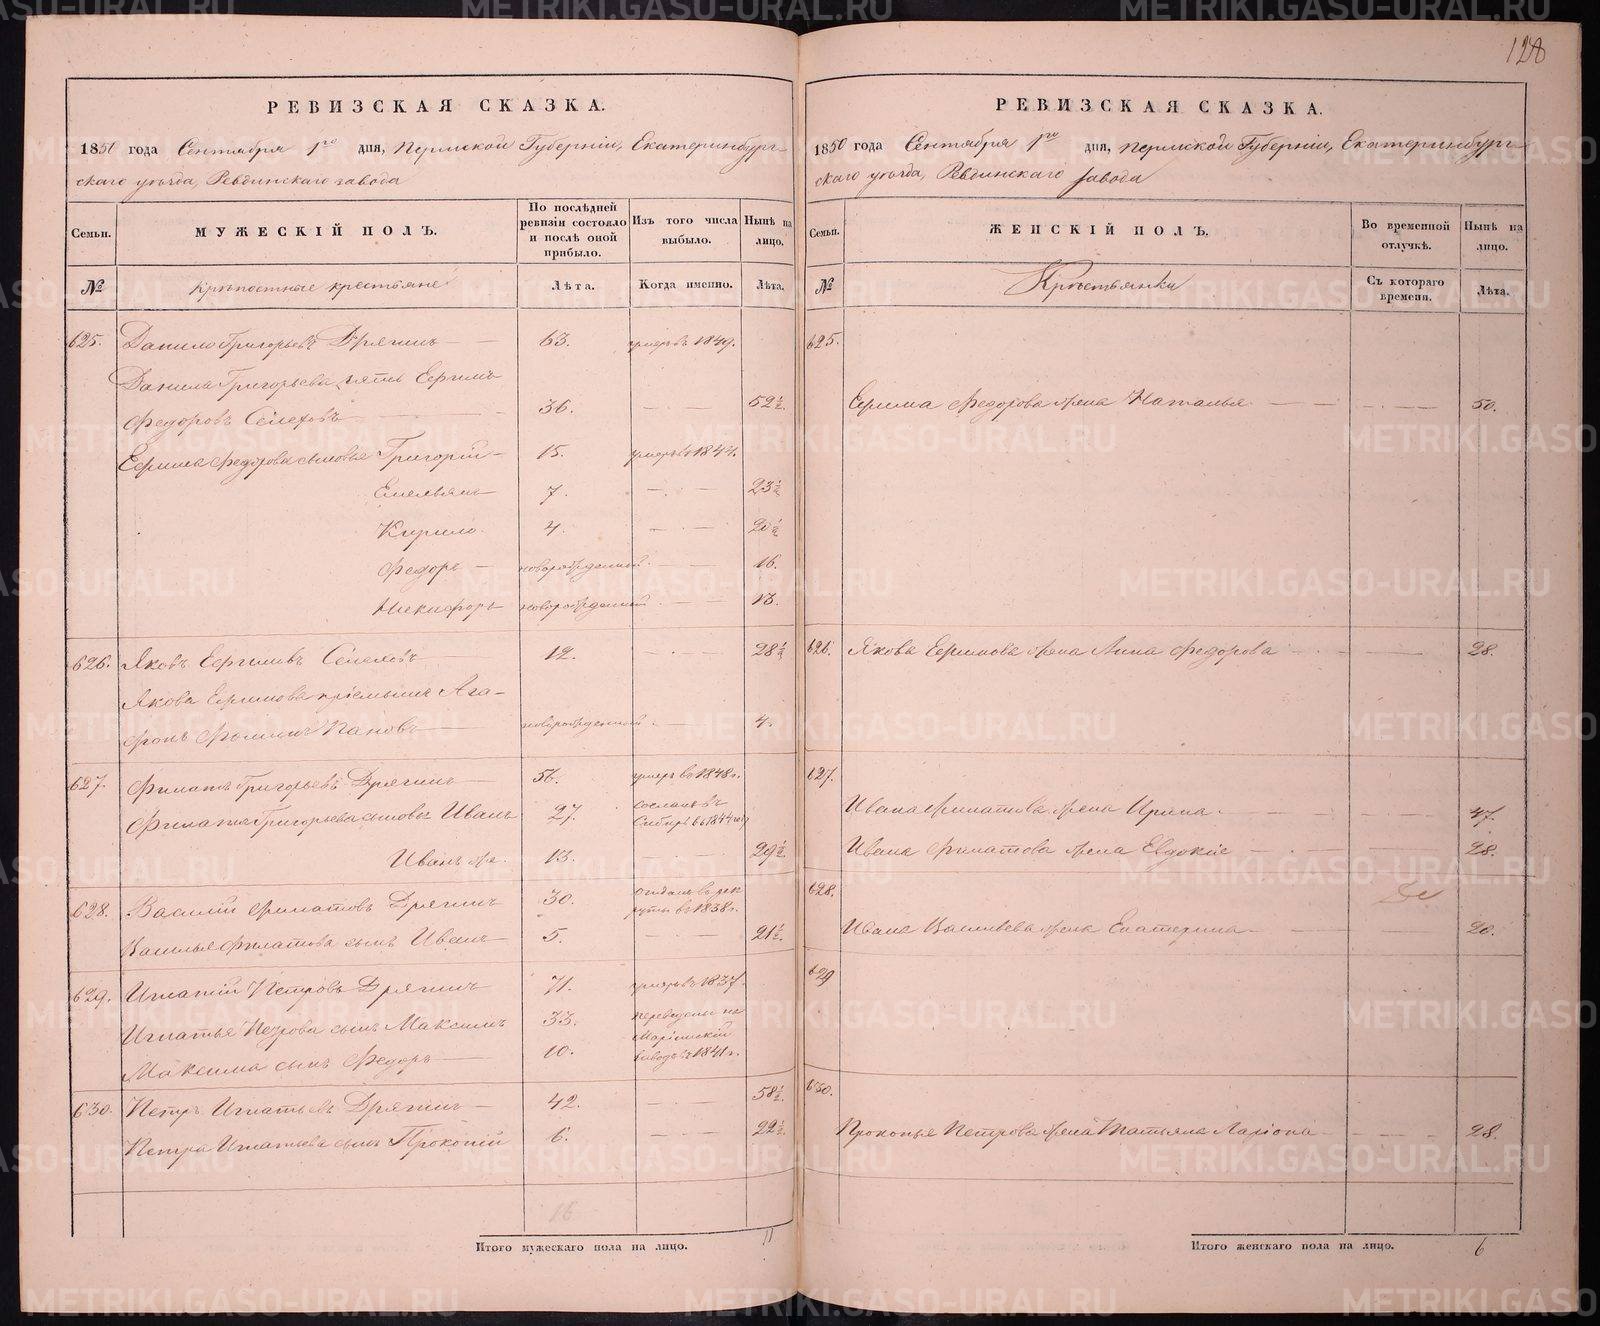 128
РЕВИЗСКАЯ СКАЗКА.
1850 года Сентября 1го дня, Пермской Губерніи, Екатеринбург-
скаго уѣзда, Ревдинскаго завода
Семьи.
МУЖЕСКІЙ ПОЛЪ.
По послѣдней ревизіи состояло и послѣ оной прибыло.
Изъ того числа выбыло.
Нынѣ на лицо.
№
Крѣпостные крестьяне
Лѣта.
Когда именно.
Лѣта.
625. Данило Григорьевъ Дрягинъ 63. умеръ въ 1849.
Данила Григорьева зять Ефимъ
Федоровъ Селеховъ 36. 52½.
Ефима Федорова сыновья Григорій 15. умеръ въ 1844.
Емельянъ 7. 23½
Кирило 4. 20½
Федоръ новорожденный 16.
Никифоръ новорожденный 13.
626. Яковъ Ефимовъ Селеховъ 12. 28½
Якова Ефимова пріемышъ Ага-
фонъ Фоминъ Пановъ новорожденный 4.
627. Филатъ Григорьевъ Дрягинъ 56. умеръ въ 1848г.
Филата Григорьева сыновья Иванъ 27. сосланъ въ
Сибирь въ 1844 году
Иванъ же 13. 29½
628. Василій Филатовъ Дрягинъ 30. отданъ въ рек
руты въ 1838г.
Василья Филатова сынъ Иванъ 5. 21½.
629. Игнатій Петровъ Дрягинъ 71. умеръ въ 1837.
Игнатья Петрова сынъ Максимъ 33. переведены на
Маріинскій
Максима сынъ Федоръ 10. заводъ въ 1841г.
630. Петръ Игнатьевъ Дрягинъ 42. 58½.
Петра Игнатьева сынъ Прокопій 6. 22½
16
Итого мужескаго пола на лицо. 11
РЕВИЗСКАЯ СКАЗКА.
1850 года Сентября 1го дня, Пермской Губерніи, Екатеринбург-
скаго уѣзда, Ревдинскаго завода
Семьи.
ЖЕНСКІЙ ПОЛЪ.
Во временной отлучкѣ.
Нынѣ на лицо.
№
Крестьянки
Съ котораго времени.
Лѣта.
625.
Ефима Федорова жена Наталья 50.
626. Якова Ефимова жена Анна Федорова 28.
627.
Ивана Филатова жена Ирина 47.
Ивана Филатова жена Евдокія 28.
628.
Ивана Васильева жена Екатерина 20.
629
630.
Прокопья Петрова жена Татьяна Ларіона 28.
Итого женскаго пола на лицо. 6
METRIKI.GASO-URAL.RU